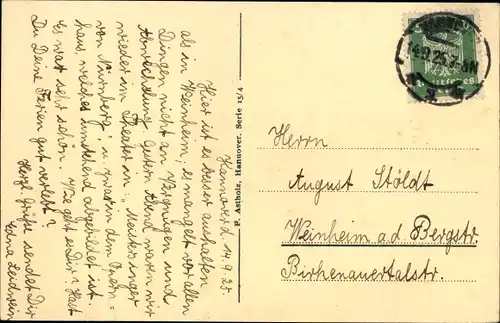 Hannover d. 14.9.25.
Hier ist es besser aushalten
als in Weinheim, es mangelt vor allen
Dingen nicht an Vergnügen und
Abwechslung. Gestern Abend waren wir
wieder im Theater in „Meistersinger
von Nürnberg" u. zwar in dem Opern-
haus, welches umstehend abgebildet ist.
Es war sehr schön. Wie geht es Dir? Hast
Du Deine Ferien gut verlebt?
Herzl. Grüße sendet Dir
Edna
R. Astholz, Hannover. Serie 13/4
14.9.25.
Herrn
August Stöldt
Weinheim a/d Bergstr.
Birkenauertalstr.